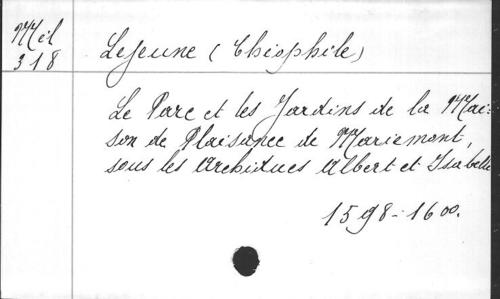 Mél
318
Lejeune (Théophile)
Le Parc et les Jardins de la Mai-
son de Plaisance de Mariemont,
sous les Archiducs Albert et Isabelle
1598-1600.